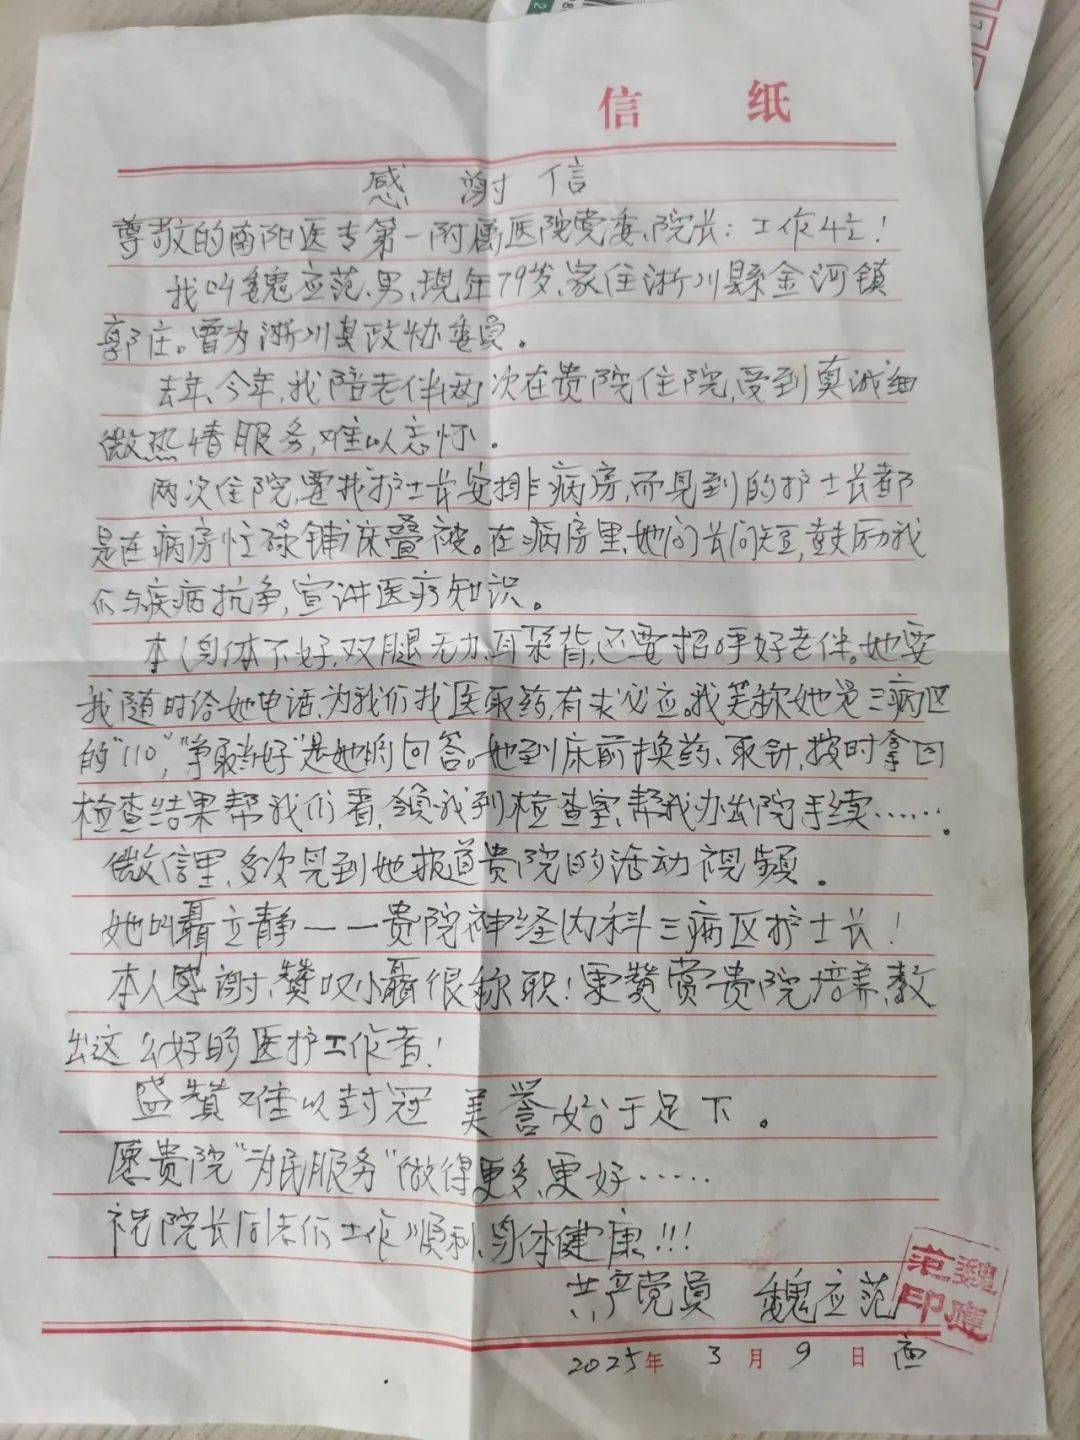 信 纸
感 谢 信
尊敬的南阳医专第一附属医院党委、院长：工作忙！
我叫魏应范、男、现年79岁、家住淅川縣金河镇
郭庄。曾为淅川县政协委员。
去年、今年，我陪老伴两次在贵院住院，受到真诚细
微热情服务，难以忘怀。
两次住院，要找护士长安排病房，而见到的护士长都
是在病房忙碌铺床叠被。在病房里，她问长问短，鼓励我
们与疾病抗争，宣讲医疗知识。
本人身体不好，双腿无力、耳聋背，还要招呼好老伴。她要
我随时给她电话、为我们找医取药，有求必应。我笑称她是三病区
的"110"，"争取当好"是她的回答。她到床前换药、取针，按时拿回
检查结果帮我们看，领我到检查室、帮我办出院手续……。
微信里、多次見到她报道贵院的活动视频。
她叫聶立静——贵院神经内科三病区护士长！
本人感谢、赞叹小聶很称职！更赞赏贵院培养、教
出这么好的医护工作者！
盛赞难以封冠 美誉始于足下。
愿贵院"为民服务"做得更多、更好……
祝院长同志们工作顺利、身体健康！！！
共产党员 魏应范
魏應范印
2025年 3月 9日